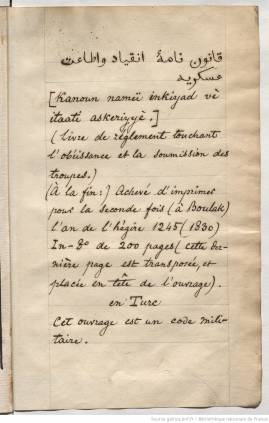 قانون نامۀ انقياد واطاعت
عسكريه
[Kanoun nameï inkiyad vè
itaatè askeriyyè.]
(Livre de règlement touchant
l'obéissance et la soumission des
troupes.)
(À la fin:) Achevé d'imprimer
pour la seconde fois (à Boulak)
l'an de l'hégire 1245 (1830)
In-8º de 200 pages (cette der-
nière page est transposée, et
placée en tête de l'ouvrage).
en Turc
Cet ouvrage est un code mili-
taire.
Source gallica.bnf.fr / Bibliothèque nationale de France